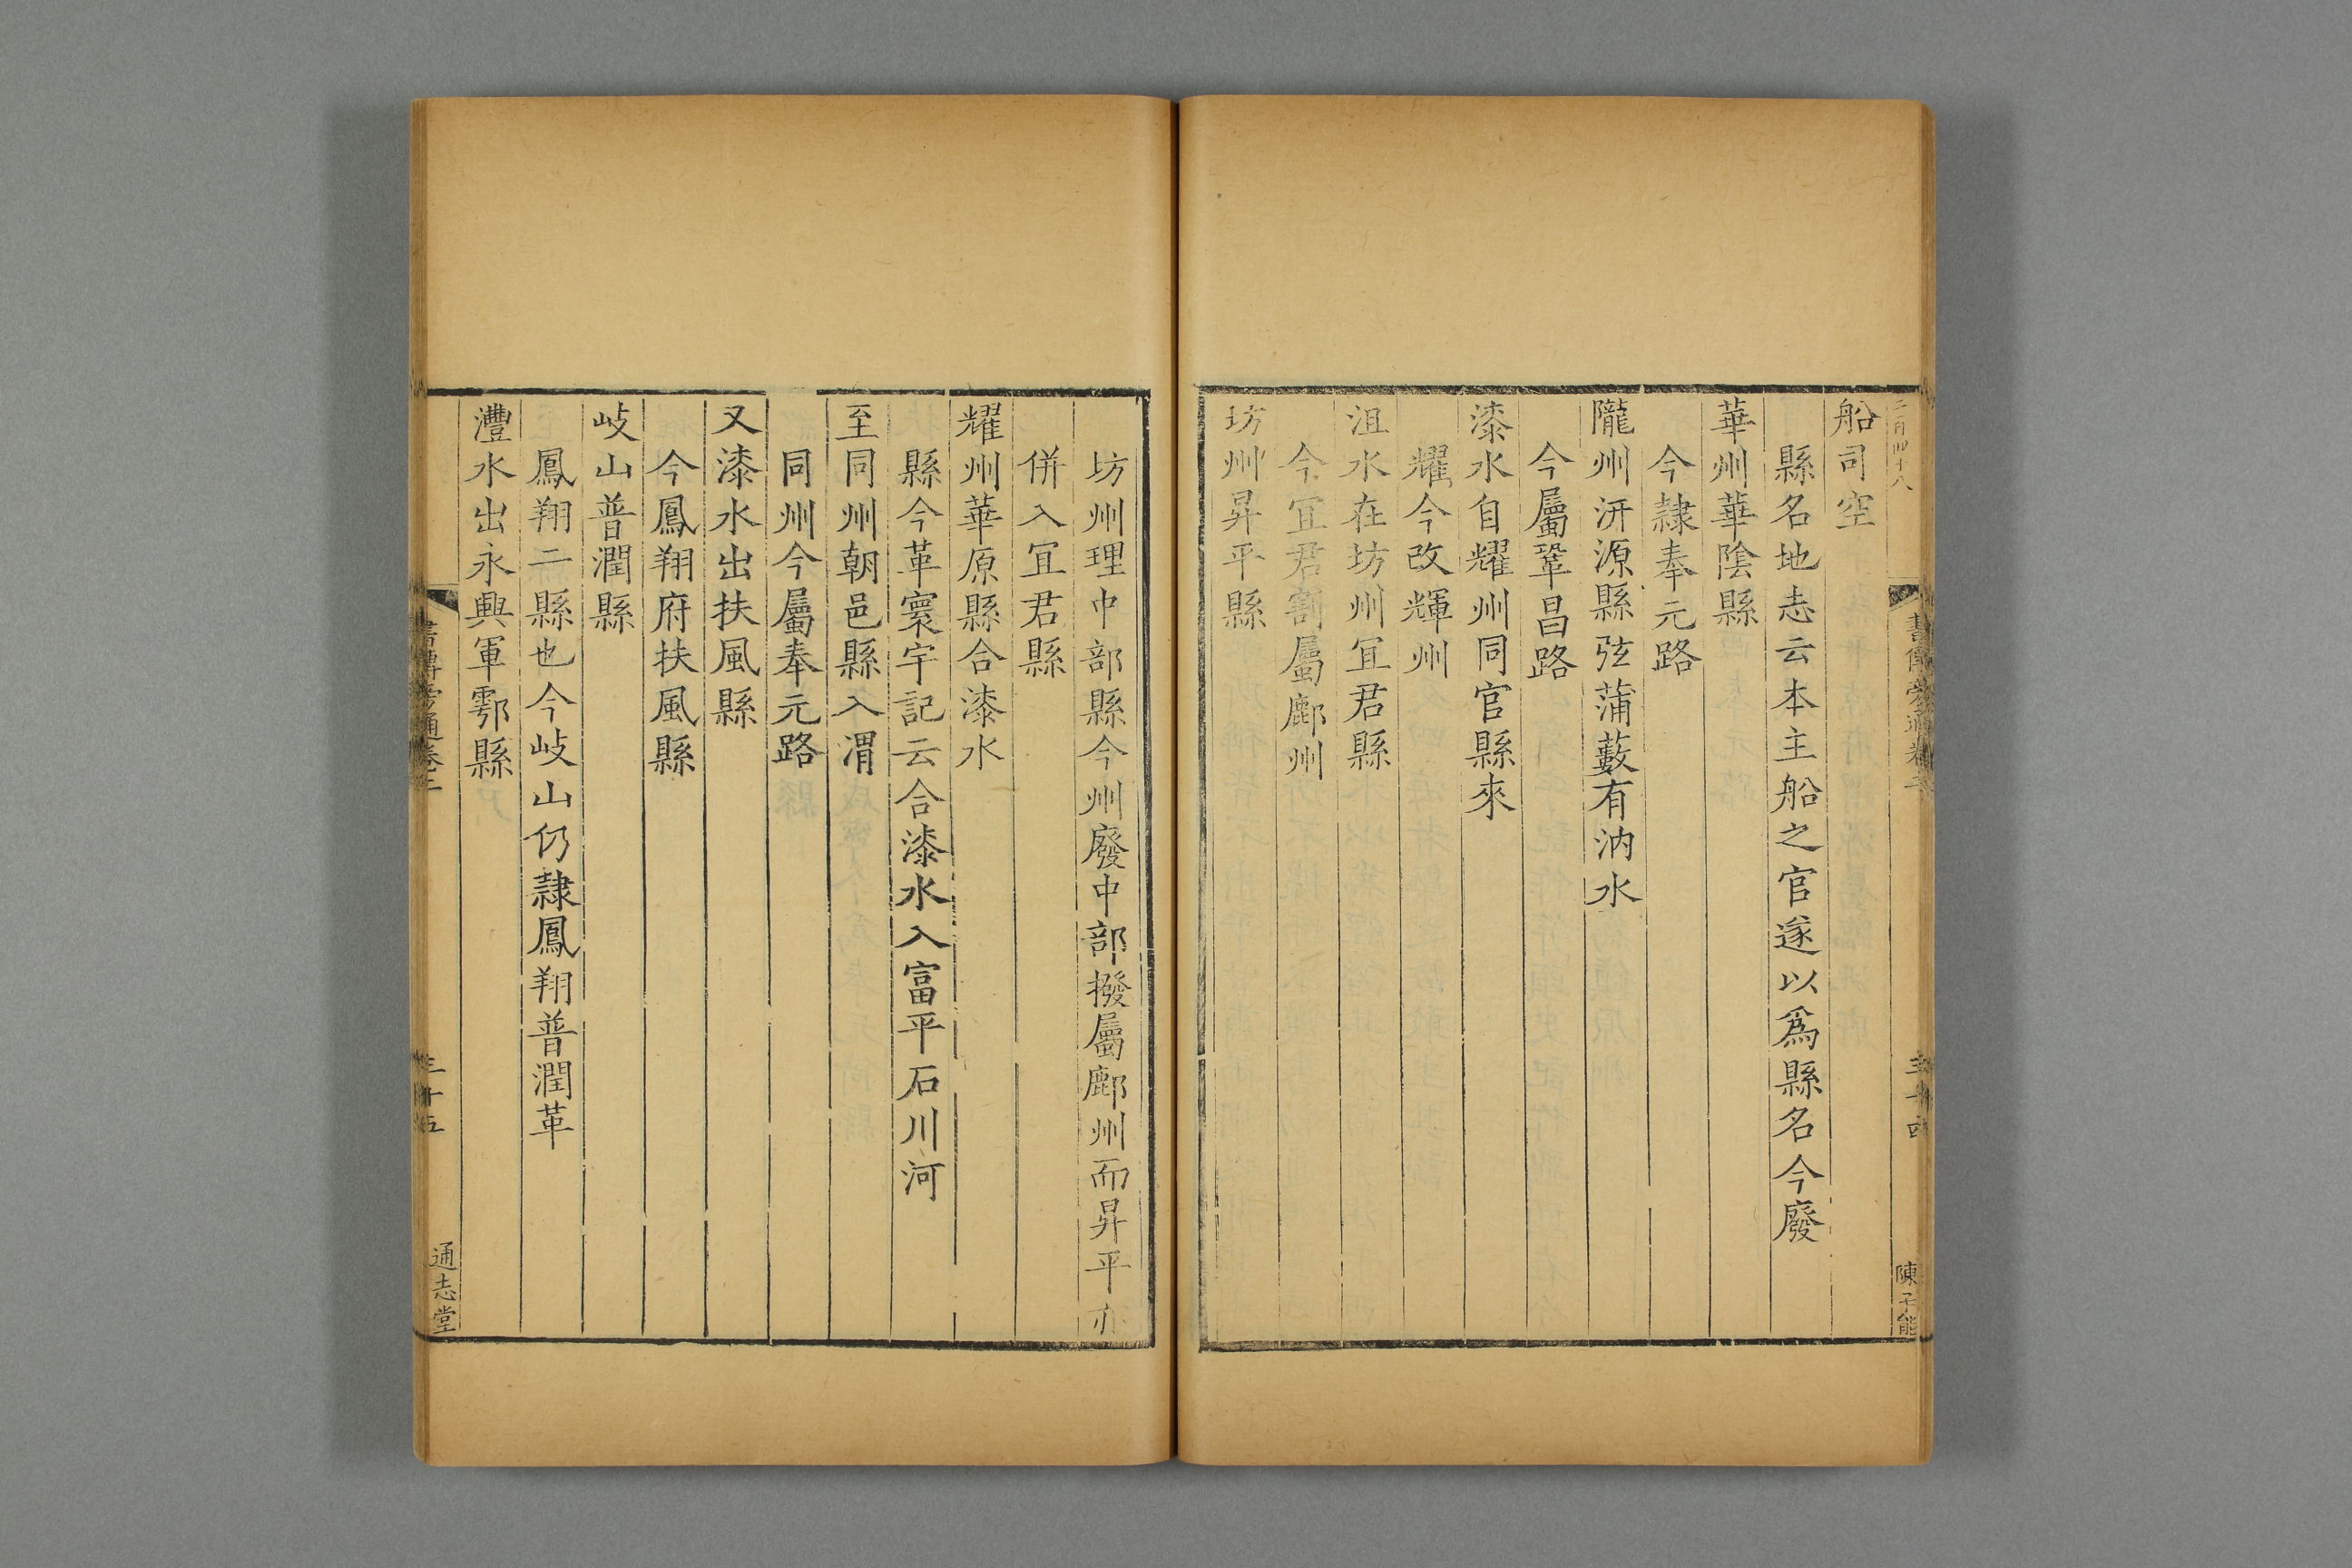 船司空
縣名地志云本主船之官遂以爲縣名今廢
華州華陰縣
今隷奉元路
隴州汧源縣弦蒲藪有汭水
今屬鞏昌路
漆水自耀州同官縣來
耀今改輝州
沮水在坊州宜君縣
今宜君割屬鄜州
坊州昇平縣
陳子能
坊州理中部縣今州廢中部撥屬鄜州而昇平亦
併入宜君縣
耀州華原縣合漆水
縣今革寰宇記云合漆水入富平石川河
至同州朝邑縣入渭
同州今屬奉元路
又漆水出扶風縣
今鳳翔府扶風縣
岐山普潤縣
鳳翔二縣也今岐山仍隷鳳翔普潤革
灃水出永興軍鄠縣
書傳旁通卷二
三十五
通志堂